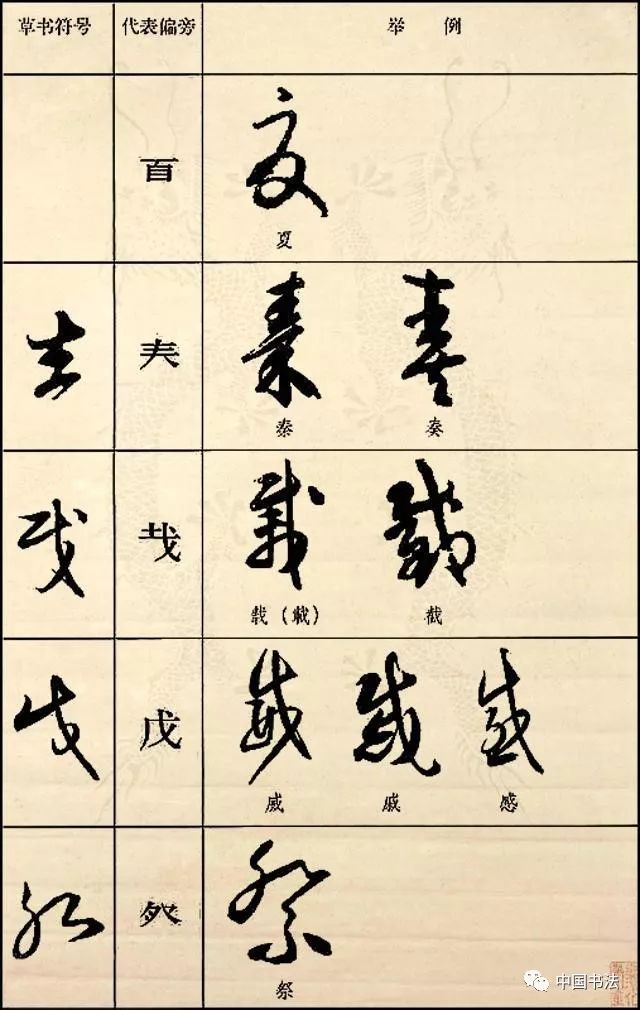 草书符号 代表偏旁 举例
百
夏
𡗗
秦 奏
𢦏
载（載） 截
戊
威 戚 感
癶
祭
中国书法